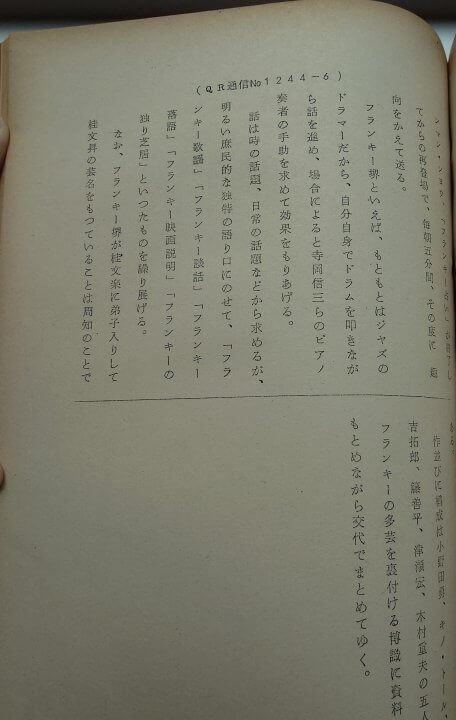 (QR通信№1244-6)
てからの再登場で、毎朝五分間、その度に 趣
向をかえて送る。
フランキー堺といえば、もともとはジャズの
ドラマーだから、自分自身でドラムを叩きなが
ら話を進め、場合によると寺岡信三らのピアノ
奏者の手助を求めて効果をもりあげる。
話は時の話題、日常の話題などから求めるが、
明るい庶民的な独特の語り口にのせて、「フラ
ンキー歌謡」「フランキー談話」「フランキー
落語」「フランキー映画説明」「フランキーの
独り芝居」といつたものを繰り展げる。
なお、フランキー堺が桂文楽に弟子入りして
桂文昇の芸名をもつていることは周知のことで
ある。
作並びに構成は小野田勇、キノ・トール、
吉拓郎、藤善平、津瀬宏、木村重夫の五人
フランキーの多芸を裏付ける博識に資料
もとめながら交代でまとめてゆく。